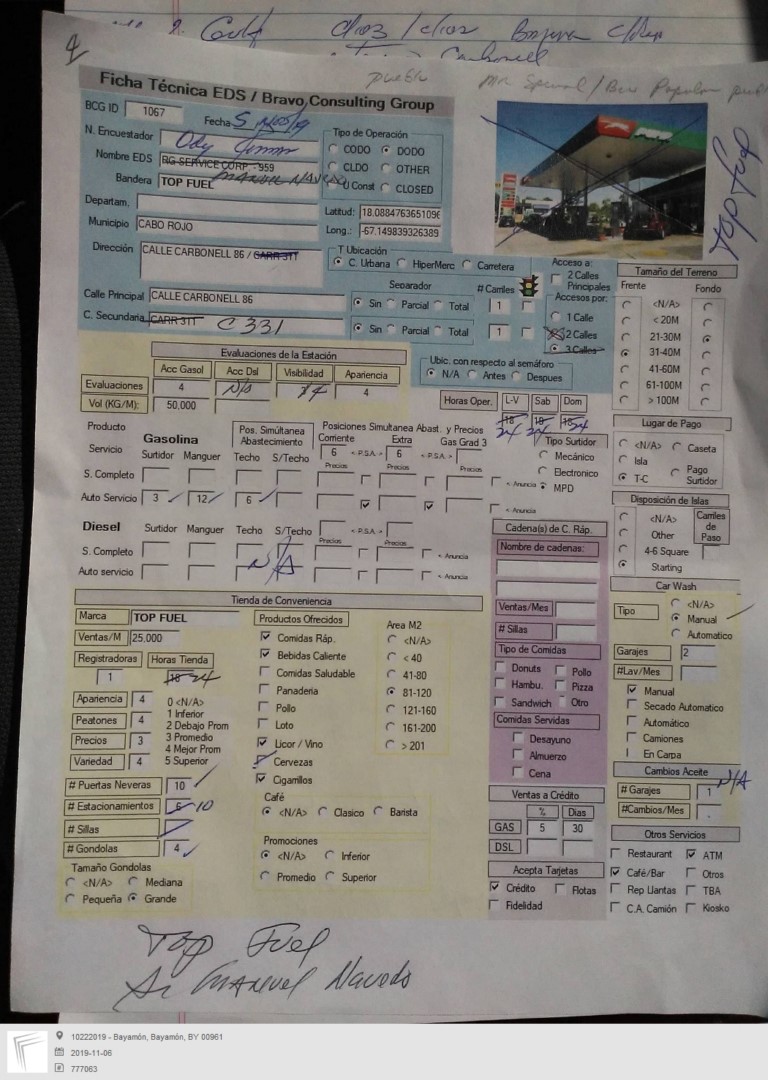 Ficha Técnica EDS / Bravo Consulting Group
BCG ID 1067
Fecha
N. Encuestador
Nombre EDS RG SERVICE CORP. - 959
Bandera TOP FUEL MANUEL NAVEDO
Departam.
Municipio CABO ROJO
Dirección CALLE CARBONELL 86 / CARR 311
Calle Principal CALLE CARBONELL 86
C. Secundaria CARR 311 C 331
Tipo de Operación
CODO DODO
CLDO OTHER
U Const CLOSED
Latitud: 18.0884763651096
Long.: -67.149839326389
T Ubicación
C. Urbana HiperMerc Carretera
Separador # Carriles
Sin Parcial Total 1
Sin Parcial Total 1
Acceso a:
2 Calles
Principales
Accesos por:
1 Calle
2 Calles
3 Calles
Ubic. con respecto al semáforo
N/A Antes Despues
Top Fuel
Tamaño del Terreno
Frente Fondo
<N/A>
< 20M
21-30M
31-40M
41-60M
61-100M
> 100M
Evaluaciones de la Estación
Acc Gasol Acc Dsl Visibilidad Apariencia
Evaluaciones 4 N/A 4 4
Vol (KG/M): 50,000
Horas Oper. L-V Sab Dom
18 18 18
24 24 24
Producto
Servicio
Gasolina
Surtidor Manguer
Pos. Simúltanea
Abastecimiento
Techo S/Techo
Posiciones Simultanea Abast. y Precios
Corriente Extra Gas Grad 3
6 < P.S.A. > 6 < P.S.A. >
Precios Precios Precios
S. Completo
< Anuncia
Auto Servicio 3 12 6
< Anuncia
Tipo Surtidor
Mecánico
Electronico
MPD
Lugar de Pago
<N/A> Caseta
Isla
T-C Pago
Surtidor
Diesel Surtidor Manguer Techo S/Techo
< P.S.A. >
Precios Precios
S. Completo < Anuncia
Auto servicio N/A < Anuncia
Disposición de Islas
<N/A>
Other
4-6 Square
Starting
Carriles
de
Paso
Cadena(s) de C. Ráp.
Nombre de cadenas:
Ventas/Mes
# Sillas
Tipo de Comidas
Donuts Pollo
Hambu. Pizza
Sandwich Otro
Comidas Servidas
Desayuno
Almuerzo
Cena
Ventas a Crédito
% Dias
GAS 5 30
DSL
Acepta Tarjetas
Crédito Flotas
Fidelidad
Tienda de Conveniencia
Marca TOP FUEL
Ventas/M 25,000
Registradoras Horas Tienda
1 18 24
Apariencia 4
Peatones 4
Precios 3
Variedad 4
0 <N/A>
1 Inferior
2 Debajo Prom
3 Promedio
4 Mejor Prom
5 Superior
# Puertas Neveras 10
# Estacionamientos 10
# Sillas
# Gondolas 4
Tamaño Gondolas
<N/A> Mediana
Pequeña Grande
Productos Ofrecidos
Comidas Ráp.
Bebidas Caliente
Comidas Saludable
Panaderia
Pollo
Loto
Licor / Vino
Cervezas
Cigarrillos
Area M2
<N/A>
< 40
41-80
81-120
121-160
161-200
> 201
Café
<N/A> Clasico Barista
Promociones
<N/A> Inferior
Promedio Superior
Car Wash
Tipo
<N/A>
Manual
Automatico
Garajes 2
#Lav/Mes
Manual
Secado Automatico
Automático
Camiones
En Carpa
Cambios Aceite
# Garajes 1 N/A
#Cambios/Mes
Otros Servicios
Restaurant ATM
Café/Bar Otros
Rep Llantas TBA
C.A. Camión Kiosko
Top Fuel
Sr Manuel Navedo
10222019 - Bayamón, Bayamón, BY 00961
2019-11-06
777063